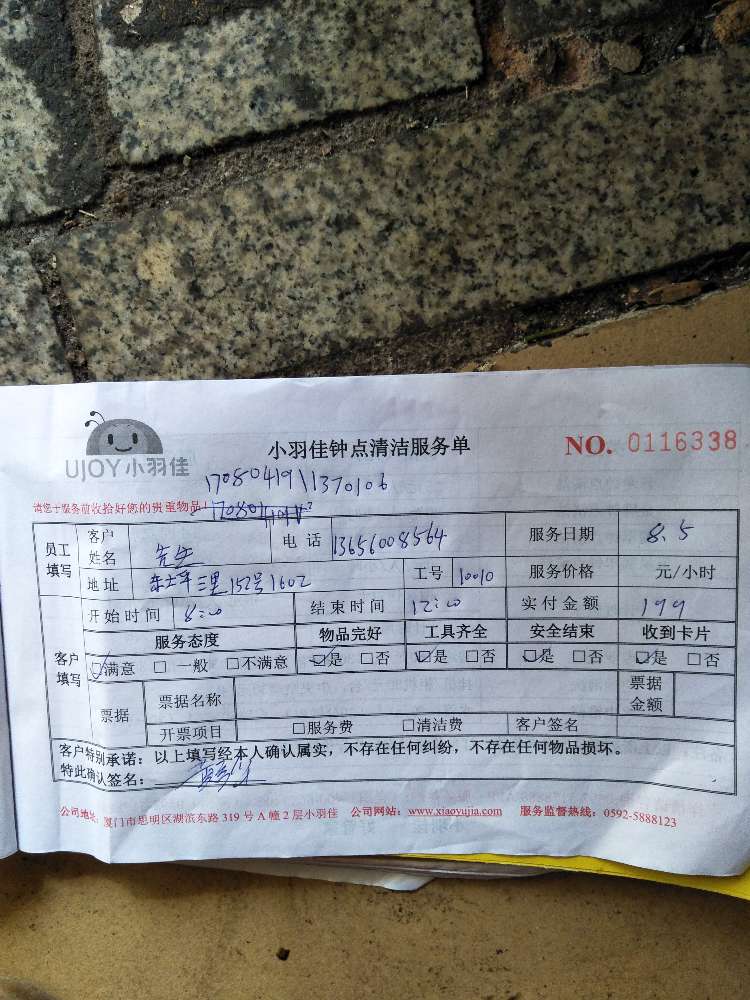 UJOY小羽佳
小羽佳钟点清洁服务单
NO. 0116338
17080419\1370106
请您于服务前收拾好您的贵重物品!
员工填写 客户姓名 先生 电话 13656008564 服务日期 8.5
地址 三里152号1602 工号 10010 服务价格 元/小时
开始时间 8:00 结束时间 12:00 实付金额 199
客户填写 服务态度 物品完好 工具齐全 安全结束 收到卡片
☑满意 □一般 □不满意 ☑是 □否 ☑是 □否 ☑是 □否 ☑是 □否
票据 票据名称 票据金额
开票项目 □服务费 □清洁费 客户签名
客户特别承诺：以上填写经本人确认属实，不存在任何纠纷，不存在任何物品损坏。
特此确认签名：
公司地址：厦门市思明区湖滨东路319号A幢2层小羽佳 公司网站：www.xiaoyujia.com 服务监督热线：0592-5888123